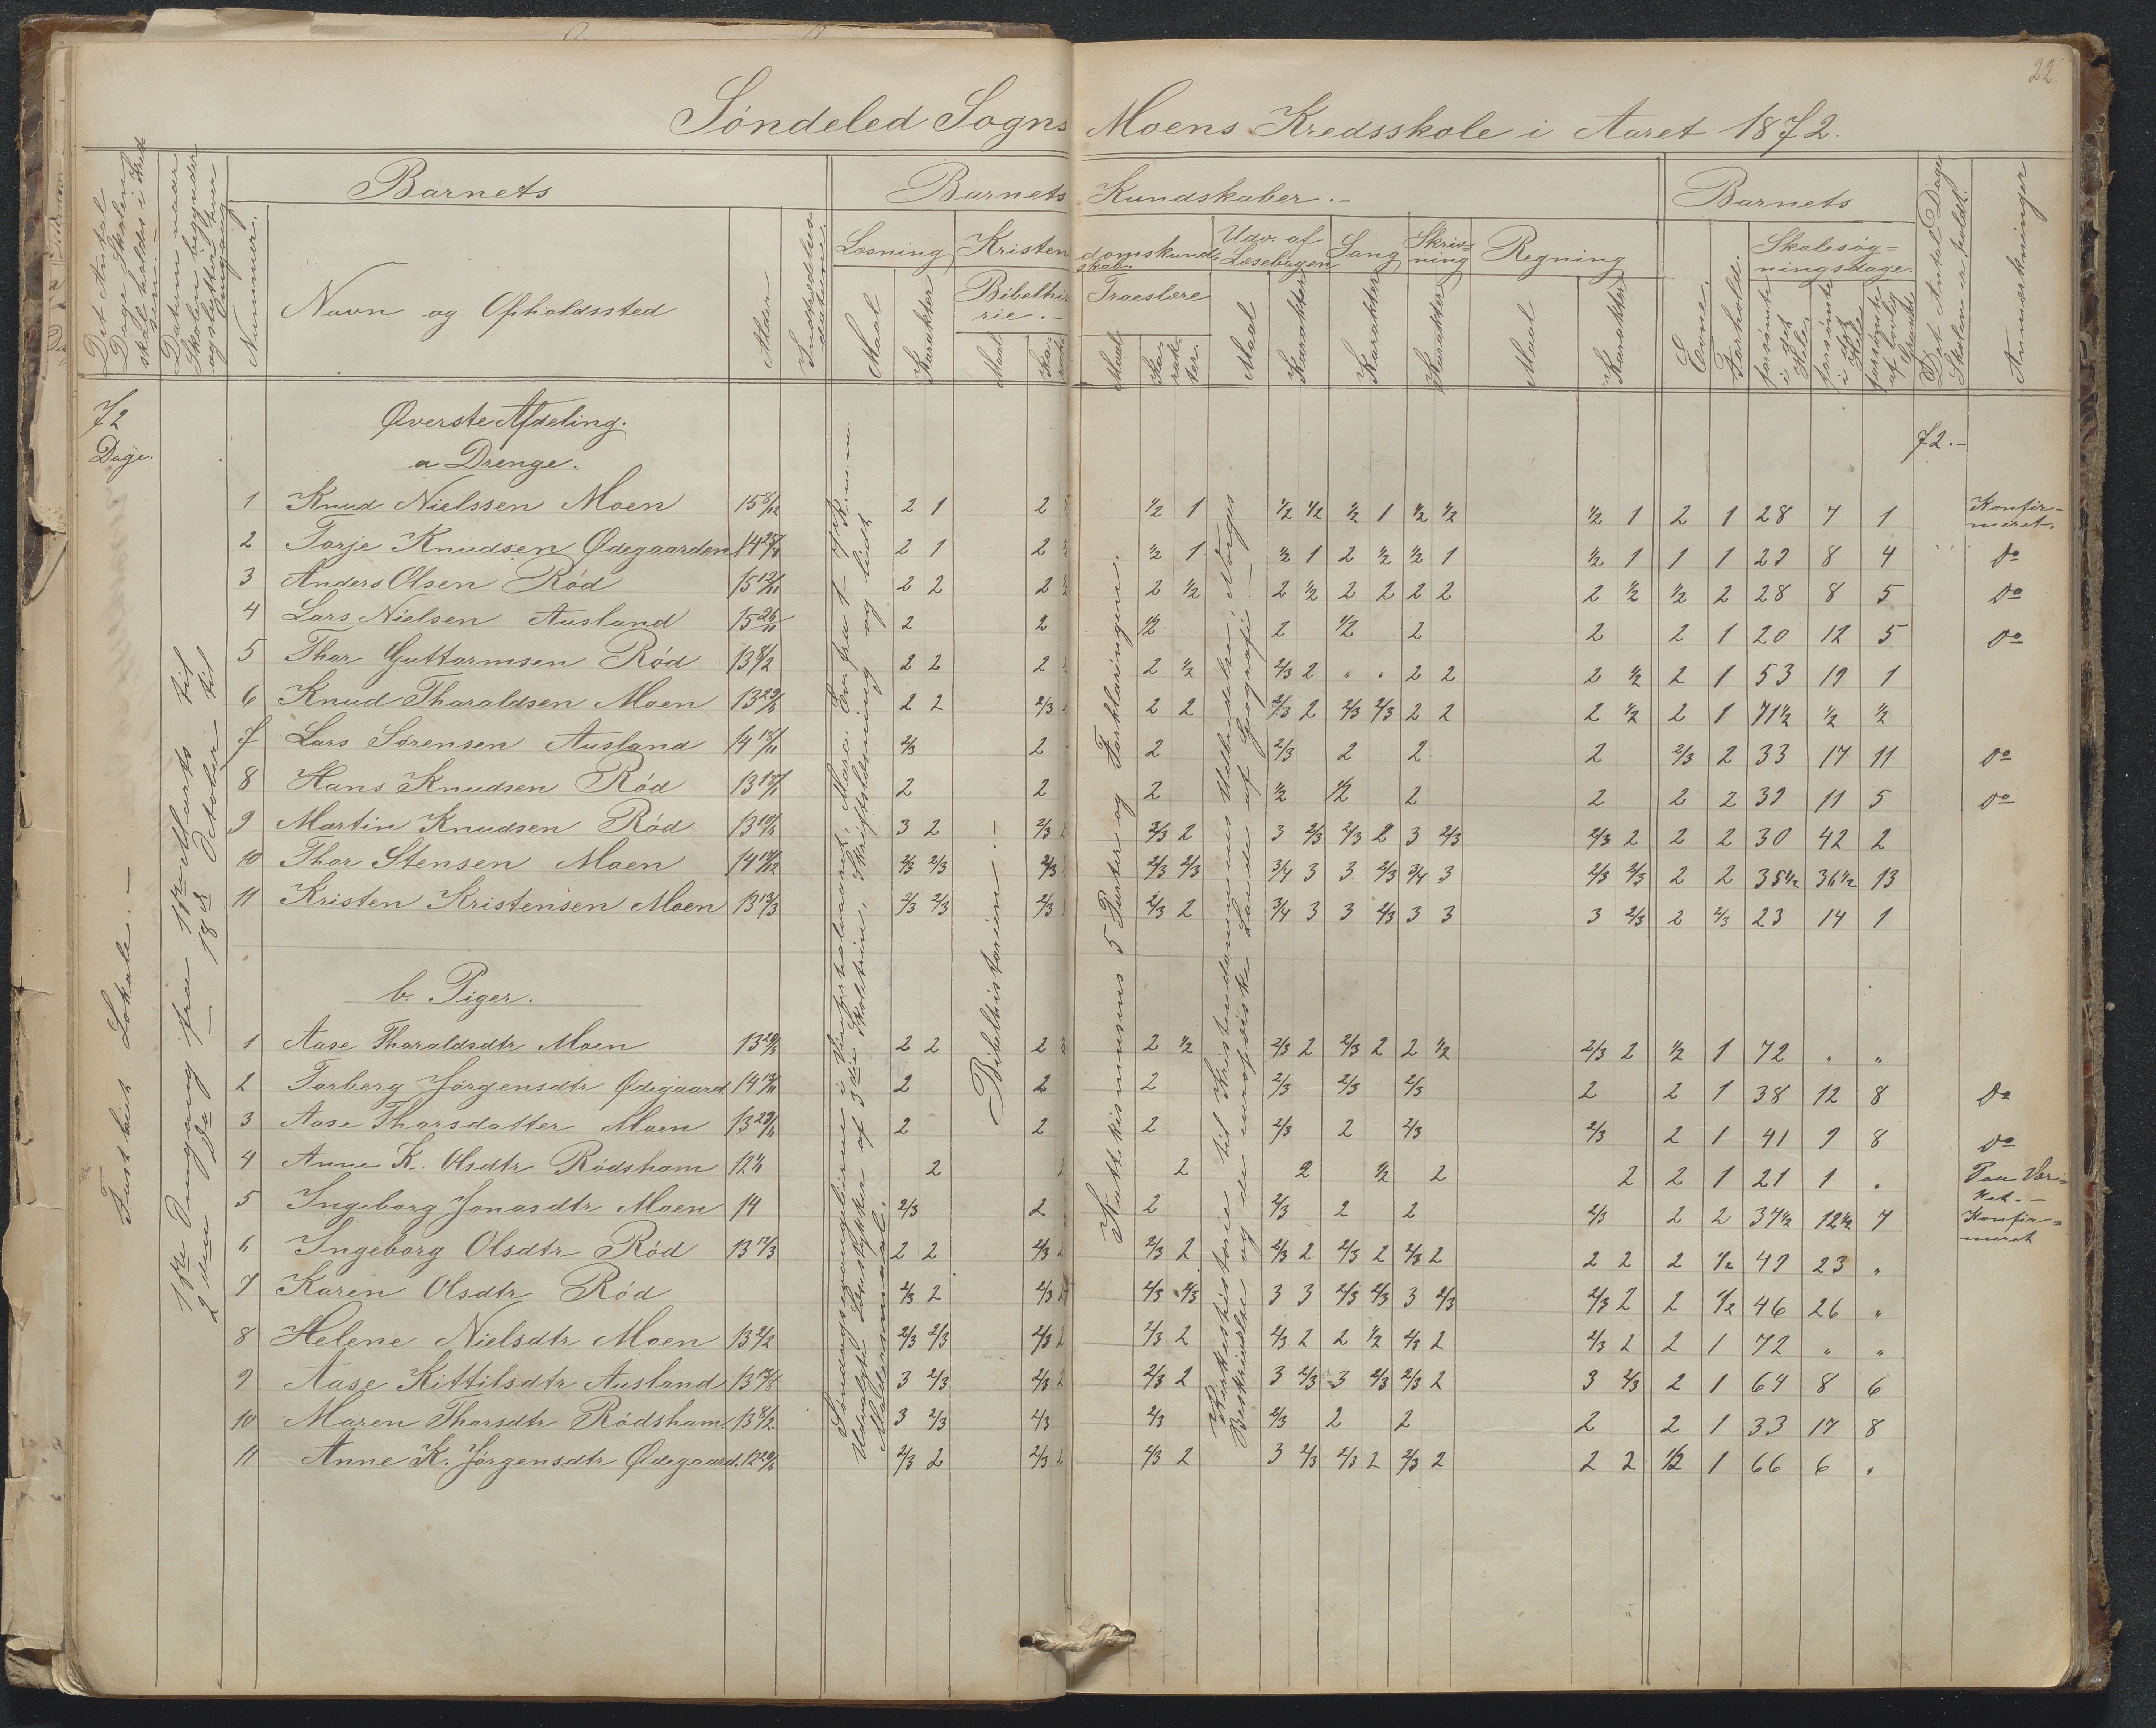 22
Søndeled Sogns Moens Kredsskole i Aaret 1872.
Det Antal Dage Skolen skal holdes i Kredsen.
Datum naar Skolen begynder og slutter hver Omgang
Barnets
Nummer.
Navn og Opholdssted
Alder
Indtrædelsesdatum.
Barnets Kundskaber.
Læsning
Maal
Karakter
Kristendomskundskab.
Bibelhistorie.
Maal
Karakter
Troeslære
Maal
Karakter.
Udv. af Læsebogen
Maal
Karakter
Sang
Karakter
Skrivning
Karakter
Regning
Maal
Karakter
Barnets
Evne.
Forhold.
Skolesøgningsdage.
forsømte i det Hele
forsømte af lovlig Grund
Det Antal Dage Skolen er holdt.
Anmærkninger
72
Dage.
Øverste Afdeling.
a Drenge.
72.-
1 Knud Nielssen Moen 15 8/12 2 1 2 1/2 1 1/2 1/2 1/2 1 1/2 1/2 1/2 1 2 1 28 7 1 Konfirmeret.
2 Torje Knudsen Ødegaarden 14 2 1 2 1/2 1 1/2 1 2 1/2 1/2 1 1/2 1 1 1 29 8 4 do
3 Anders Olsen Rød 15 2 2 2 2 1/2 2 1/2 2 2 2 2 2 1/2 1/2 2 28 8 5 do
4 Lars Nielsen Ausland 15 26/11 2 2 1/2 2 1/2 2 2 2 1 20 12 5 do
5 Thor Guttormsen Rød 13 8/2 2 2 2 2 1/2 2/3 2 " " 2 2 2 1/2 2 1 53 19 1
6 Knud Tharaldsen Moen 13 2 2 2/3 2 2 2/3 2 2/3 2/3 2 2 2 1/2 2 1 71 1/2 1/2 1/2
7 Lars Sørensen Ausland 14 2/3 2 2 2/3 2 2 2 2/3 2 33 17 11 do
8 Hans Knudsen Rød 13 2 2 2 1/2 1/2 2 2 2 2 39 11 5 do
9 Martin Knudsen Rød 13 3 2 2/3 2/3 2 3 2/3 2/3 2 3 2/3 2/3 2 2 2 30 42 2
10 Thor Stensen Moen 14 2/3 2/3 2/3 2/3 2/3 3/4 3 3 2/3 3/4 3 2/3 2/3 2 2 35 1/2 36 1/2 13
11 Kristen Kristensen Moen 13 13/3 2/3 2/3 2/3 2/3 2 3/4 3 3 2/3 3 3 3 2/3 2 2/3 23 14 1
b. Piger.
1 Aase Tharaldsdtr Moen 13 2 2 2 2 1/2 2/3 2 2/3 2 2 1/2 2/3 2 1/2 1 72 " "
2 Torberg Jørgensdtr Ødegaard 14 2 2 2 2/3 2/3 2/3 2 2 1 38 12 8 do
3 Aase Thorsdatter Moen 13 2 2 2 2/3 2 2/3 2/3 2 1 41 9 8 do
4 Anne K. Olsdtr Rødsham 12 2 2 2 1/2 2 2 2 1 21 1 "
5 Ingeborg Jonasdtr Moen 14 2/3 2 2 2/3 2 2 2/3 2 2 37 1/2 12 1/2 7 Konfirmeret
6 Ingeborg Olsdtr Rød 13 12/3 2 2 2/3 2/3 2 2/3 2 2/3 2 2/3 2 2 2 2 1/2 49 23 "
7 Karen Olsdtr Rød 2/3 2 2/3 2/3 2/3 3 3 2/3 2/3 3 2/3 2/3 2 2 1/2 46 26 "
8 Helene Nielsdtr Moen 13 2/2 2/3 2/3 2/3 2/3 2 2/3 2 2 1/2 2/3 2 2/3 2 2 1 72 " "
9 Aase Kittilsdtr Ausland 13 3 2/3 2/3 2/3 2 3 2/3 3 2/3 2/3 2 3 2/3 2 1 64 8 6
10 Maren Thorsdtr Rødsham 13 8/2 3 2/3 2/3 2/3 2/3 2 2 2 2 1 33 17 8
11 Anne K. Jørgensdtr Ødegaard. 12 2/3 2 2/3 2/3 2 3 2/3 2/3 2 2/3 2 2 2 1/2 1 66 6 "
Fast leiet Lokale.-
1ste Omgang fra 11te Marts til
2den Do - 18de October til
Søndagsevangelierne i
Udvalgte Læsestykker af 3die Skoletrin. Skriftlæsning og lidt
Modersmaal.
Bibelhistorien.-
Kattekismusens 5 Parter og Forklaringen.
Kirkehistorie til Kristendommens Udbredelse i Norges
Beskrivelse og de europæiske Lande af Geografi.-